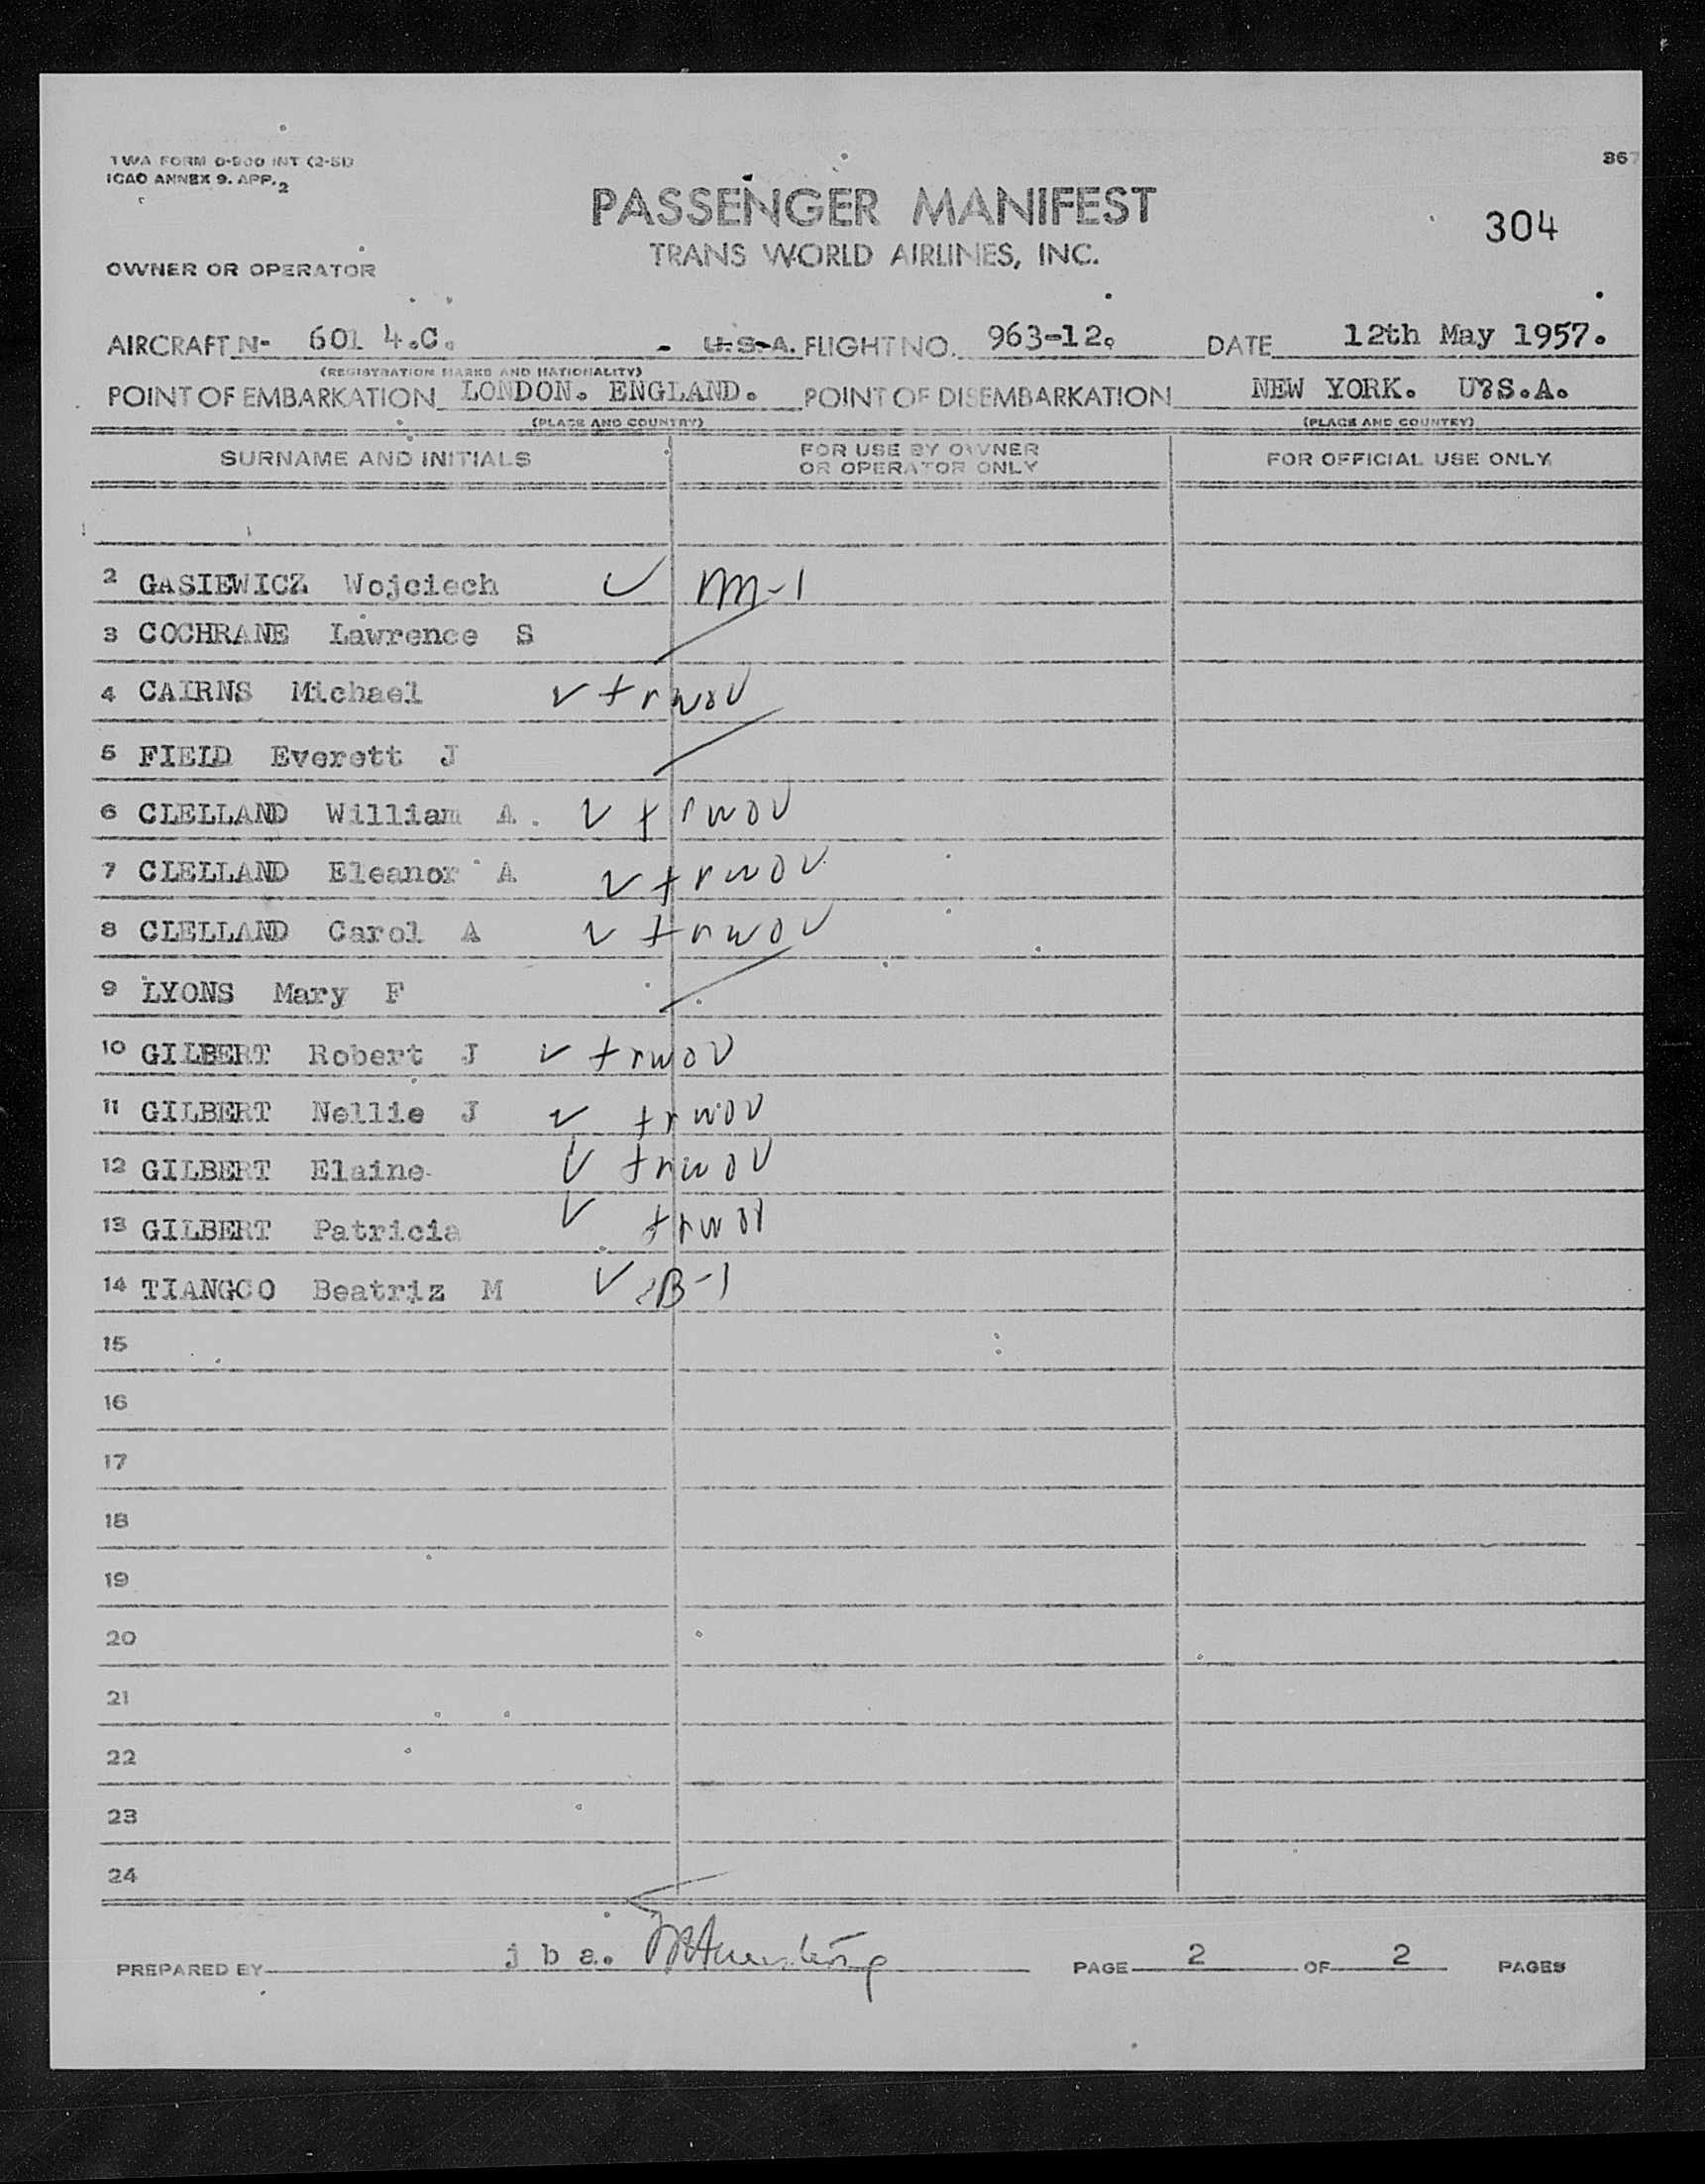 TWA FORM O-900 INT (2-51)
ICAO ANNEX 9. APP. 2
367
PASSENGER MANIFEST
304
TRANS WORLD AIRLINES, INC.
OWNER OR OPERATOR
AIRCRAFT N- 601 4.C. - U.S.A. FLIGHT NO. 963-12. DATE 12th May 1957.
(REGISTRATION MARKS AND NATIONALITY)
POINT OF EMBARKATION LONDON. ENGLAND. POINT OF DISEMBARKATION NEW YORK. U?S.A.
(PLACE AND COUNTRY) (PLACE AND COUNTRY)
SURNAME AND INITIALS FOR USE BY OWNER OR OPERATOR ONLY FOR OFFICIAL USE ONLY
2 GASIEWICZ Wojciech m-1
3 COCHRANE Lawrence S
4 CAIRNS Michael trwov
5 FIELD Everett J
6 CLELLAND William A. trwov
7 CLELLAND Eleanor A trwov
8 CLELLAND Carol A trwov
9 LYONS Mary F
10 GILBERT Robert J trwov
11 GILBERT Nellie J trwov
12 GILBERT Elaine trwov
13 GILBERT Patricia trwov
14 TIANGCO Beatriz M B-1
15
16
17
18
19
20
21
22
23
24
PREPARED BY j b a. PAGE 2 OF 2 PAGES